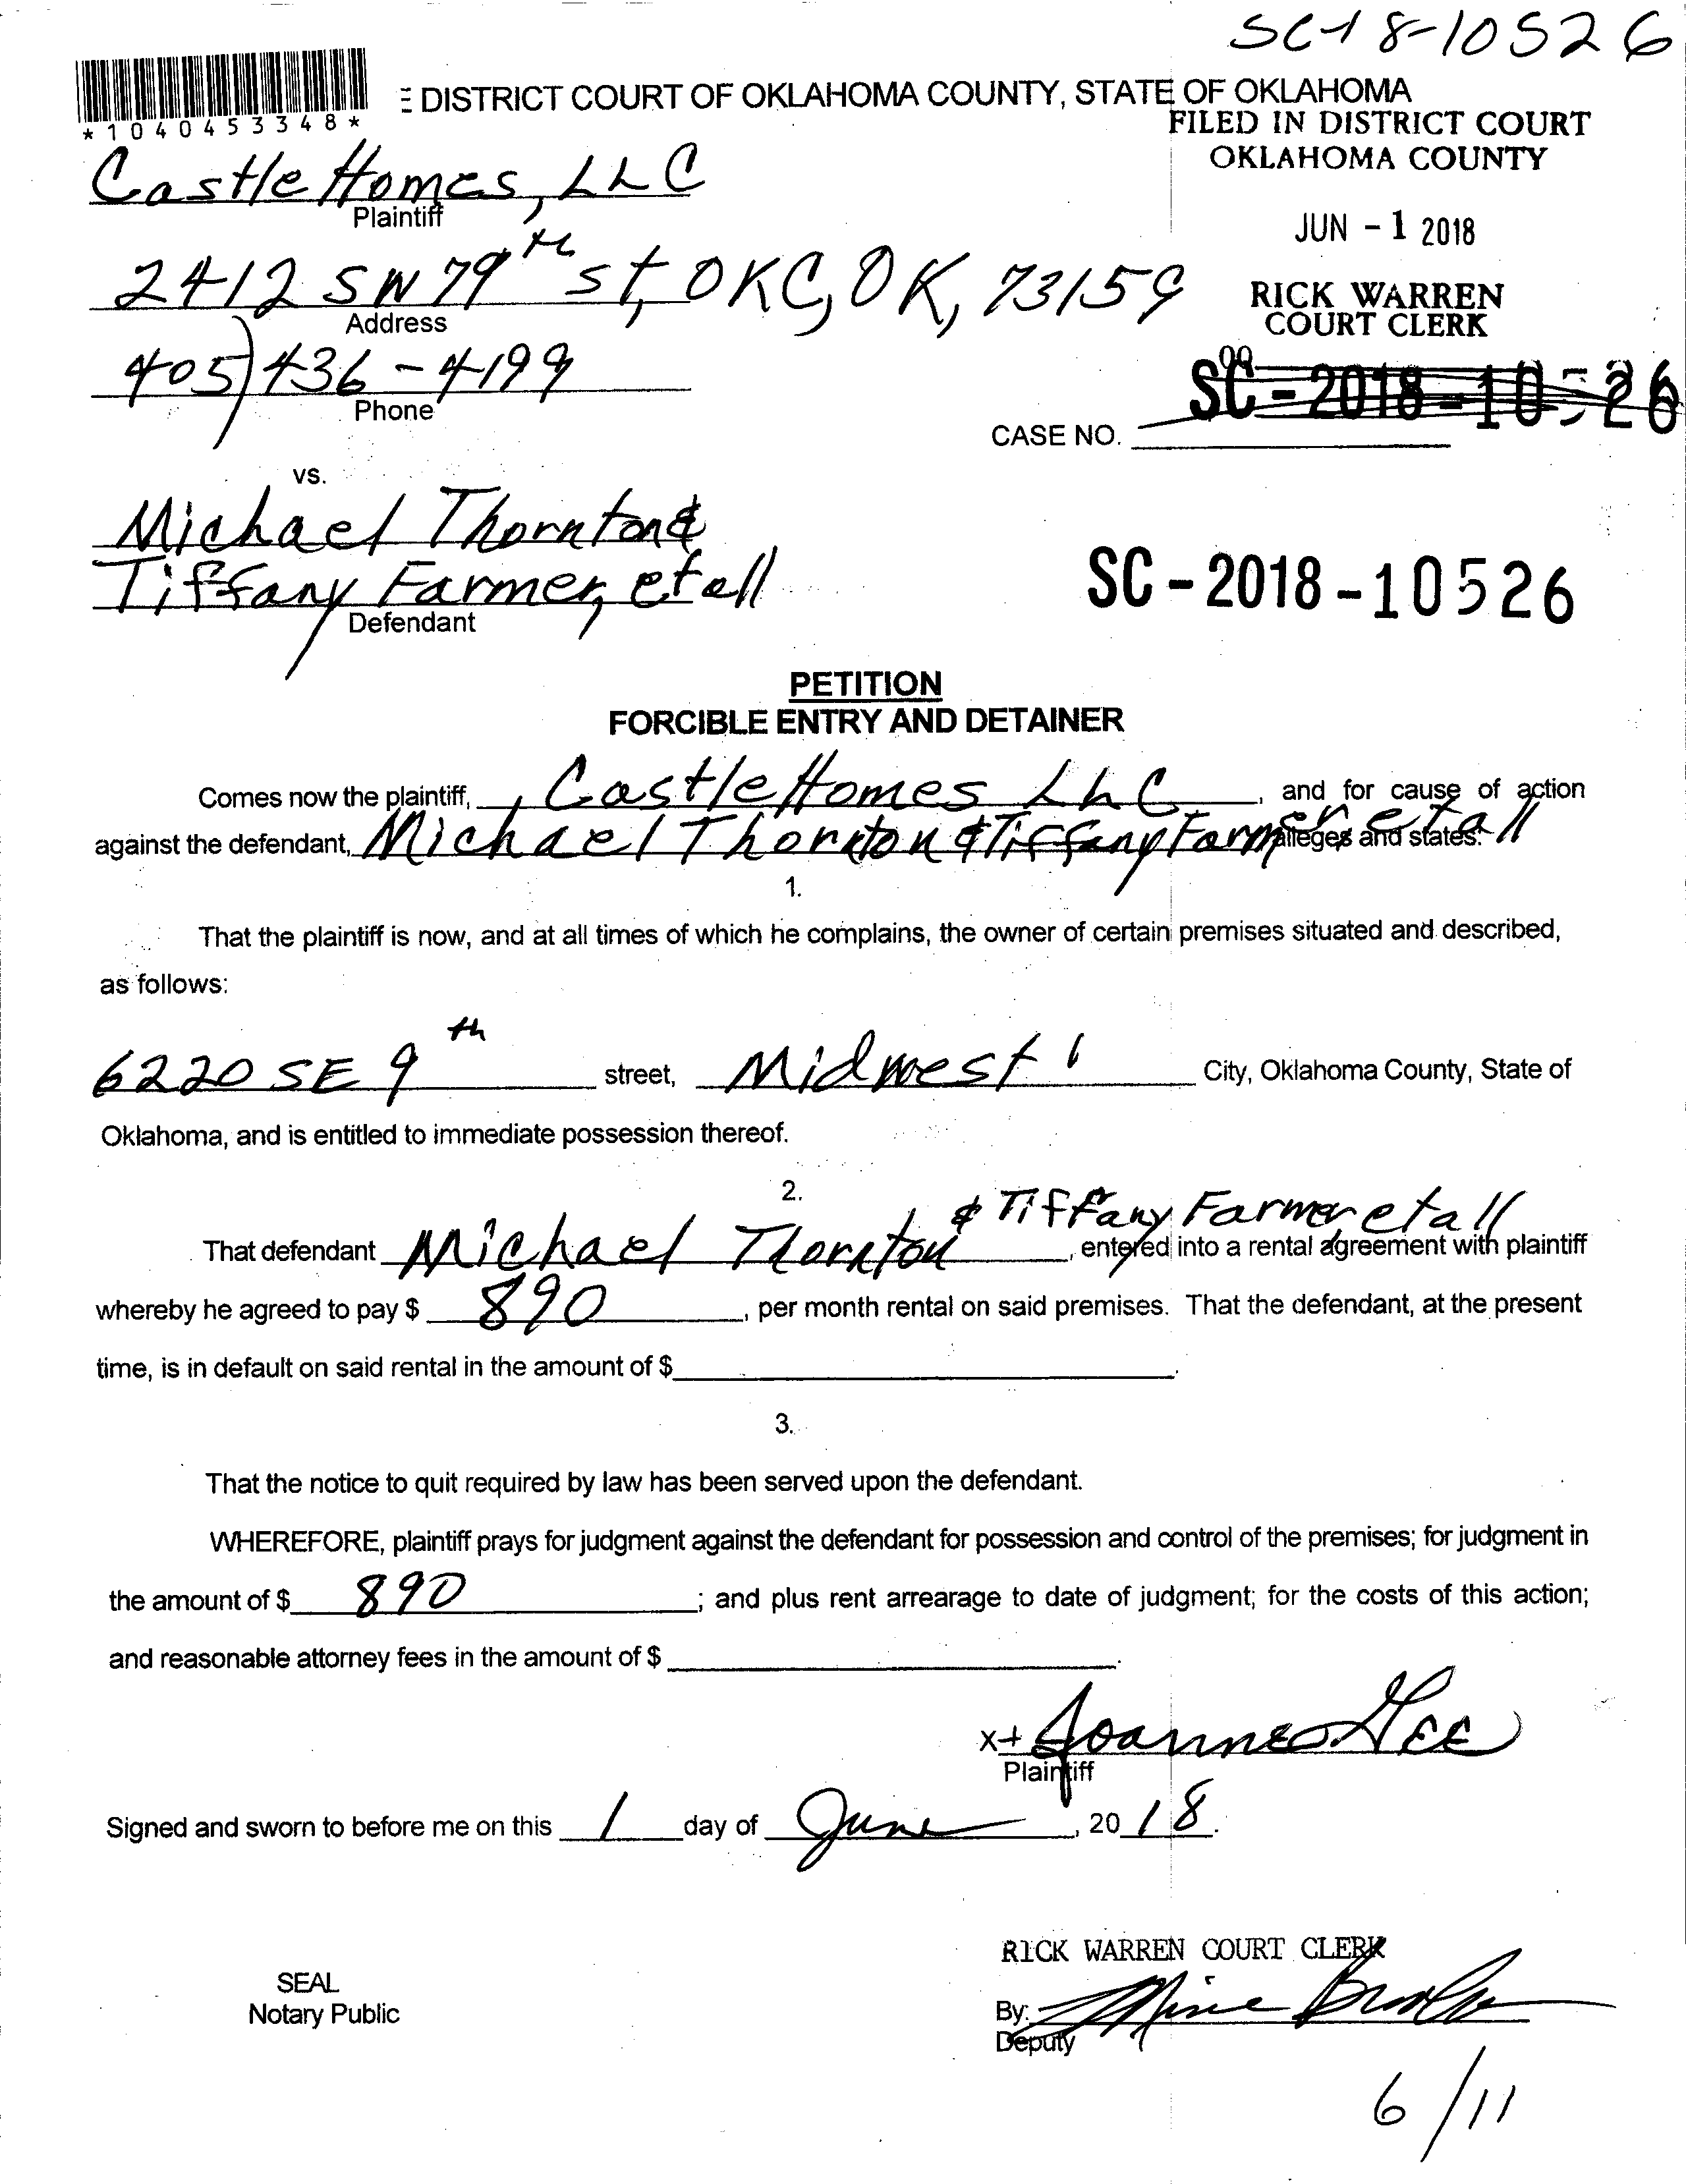 SC-18-10526
*1040453348*
E DISTRICT COURT OF OKLAHOMA COUNTY, STATE OF OKLAHOMA
FILED IN DISTRICT COURT
OKLAHOMA COUNTY
Castle Homes, LLC
Plaintiff
JUN - 1 2018
2412 SW 79th st, OKC, OK, 73159
Address
RICK WARREN
COURT CLERK
405) 436-4199
Phone
SC-2018-10526
CASE NO.
vs.
Michael Thornton &
Tiffany Farmer, et all
Defendant
SC-2018-10526
PETITION
FORCIBLE ENTRY AND DETAINER
Comes now the plaintiff, Castle Homes LLC, and for cause of action
against the defendant, Michael Thornton & Tiffany Farmer et all alleges and states:
1.
That the plaintiff is now, and at all times of which he complains, the owner of certain premises situated and described,
as follows:
6220 SE 9th street, Midwest City, Oklahoma County, State of
Oklahoma, and is entitled to immediate possession thereof.
2.
That defendant Michael Thornton & Tiffany Farmer et all, entered into a rental agreement with plaintiff
whereby he agreed to pay $ 890, per month rental on said premises. That the defendant, at the present
time, is in default on said rental in the amount of $ .
3.
That the notice to quit required by law has been served upon the defendant.
WHEREFORE, plaintiff prays for judgment against the defendant for possession and control of the premises; for judgment in
the amount of $ 890; and plus rent arrearage to date of judgment; for the costs of this action;
and reasonable attorney fees in the amount of $ .
X Joanne Gee
Plaintiff
Signed and sworn to before me on this 1 day of June, 2018.
RICK WARREN COURT CLERK
SEAL
Notary Public
By:
Deputy
6/11